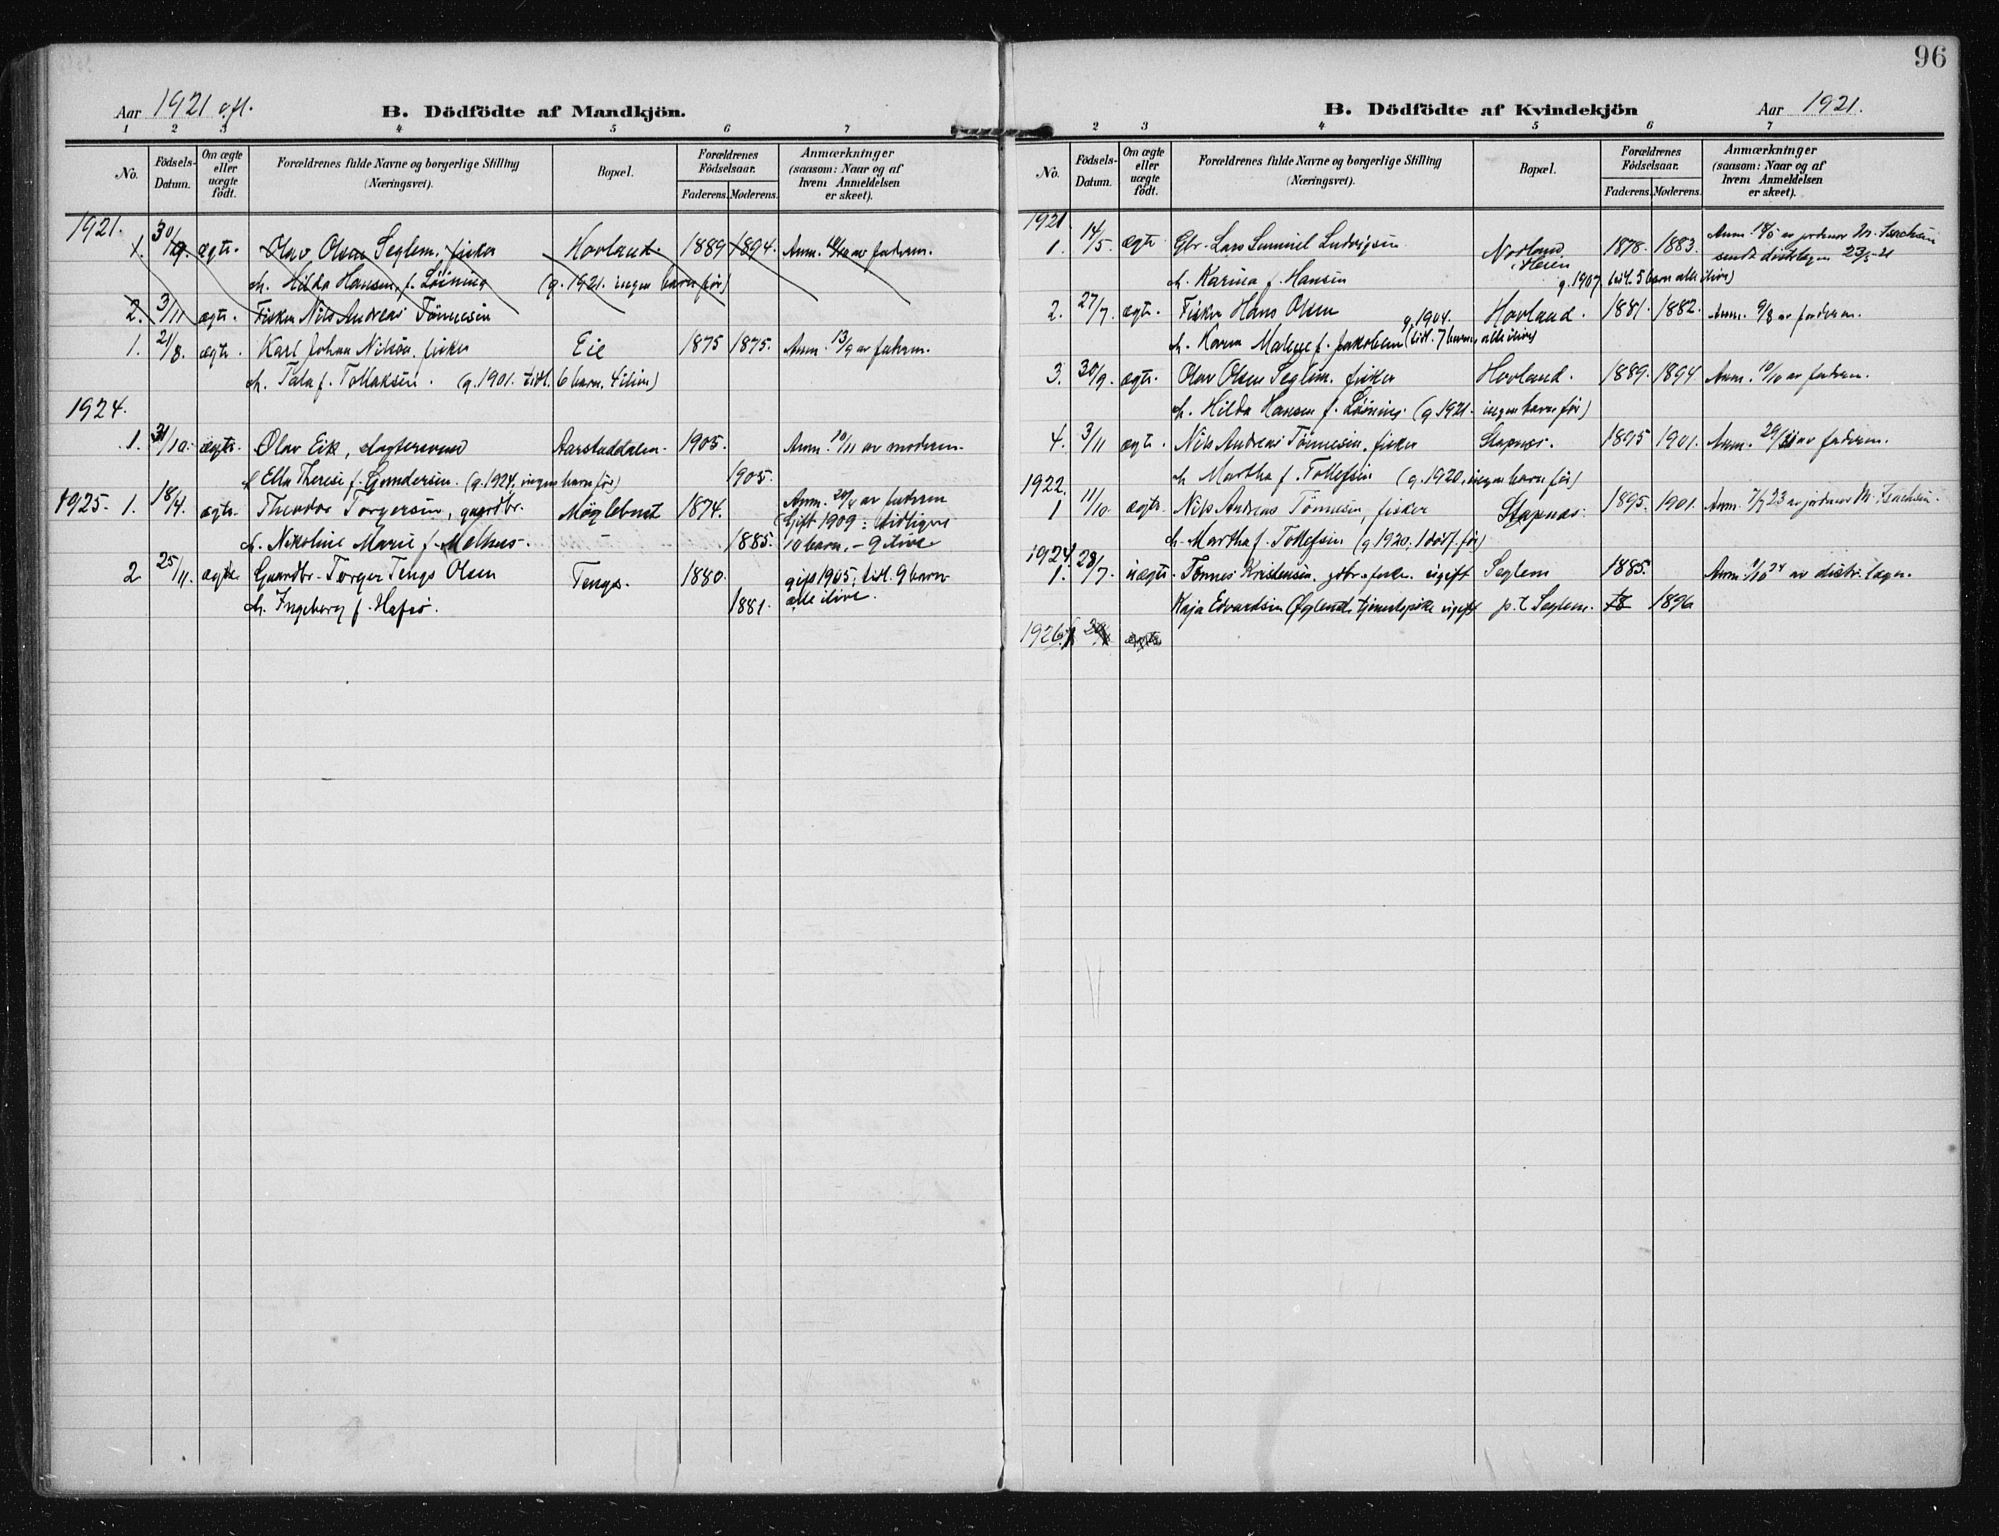 96
Aar 1921 o.fl.
B. Dödfödte af Mandkjön.
1 2 3 4 5 6 7
No.
Födsels-Datum.
Om ægte eller uægte födt.
Forældrenes fulde Navne og borgerlige Stilling (Næringsvei).
Bopæl.
Forældrenes Födselsaar.
Faderens. Moderens.
Anmærkninger (saasom: Naar og af hvem Anmeldelsen er skeet).
1921.
1. 30/9. ægte. Olav Olsen Seglem, fisker Hovland. 1889 1894. Anm. 10/10 av faderen.
h. Hilda Hansen f. Løining (g. 1921. ingen barn før)
2. 3/11 ægte. Fisker Nils Andreas Tönnesen
1. 21/8. ægte. Karl Johan Nilsen, fisker Eie 1875 1875. Anm. 13/9 av faderen.
h. Tala f. Tollaksen. (g. 1901. tidl. 6 barn. 4 ilive)
1924.
1. 31/10. ægte. Olav Eik, slagtersvend Aarstaddalen. 1905. Anm. 10/11 av moderen.
h Ella Therese f. Gundersen. (g. 1924. ingen barn før) 1905.
1925. 1. 18/4. ægte. Theodor Torgersen, gaardbr. Möglebust 1874. Anm. 20/4 av faderen
h. Nikoline Marie f. Melhus. - 1885. (Gift 1909: tidligere 10 barn, - 9 ilive
2. 25/11. ægte Gaardbr. Torger Tengs Olsen Tengs. 1880. gift 1905, tidl. 9 barn
h. Ingeborg f. Hafsö. 1881. alle ilive.
B. Dödfödte af Kvindekjön
Aar 1921.
2 3 4 5 6 7
No.
Födsels-Datum.
Om ægte eller uægte födt.
Forældrenes fulde Navne og borgerlige Stilling (Næringsvei).
Bopæl.
Forældrenes Födselsaar.
Faderens. Moderens.
Anmærkninger (saasom: Naar og af hvem Anmeldelsen er skeet).
1921
1. 14/5. ægte Gbr. Lars Samuel Ludvigsen Nodland, Heien 1878. 1883. Anm. 18/5 av jordmor M. Isachsen
h. Karina f. Hansen g. 1907. tidl. 5 barn alle ilive) sendt distrlægen 23/5-21
2. 27/7. ægte. Fisker Hans Olsen Hovland. 1881. 1882. Anm. 9/8 av faderen.
h. Karen Malene f. Jakobsen g. 1904. (tidl. 7 barn, alle ilive)
3. 30/9. ægte. Olav Olsen Seglem. fisker Hovland. 1889. 1894 Anm. 10/10 av faderen.
h. Hilda Hansen f. Løining. (g. 1921. ingen barn før)
4. 3/11 ægte. Nils Andreas Tönnesen, fisker Stapnes. 1895 1901. Anm. 29/11 av faderen.
h. Martha f. Tollefsen (g. 1920, ingen barn før)
1922.
1 11/10. ægte. Nils Andreas Tönnesen, fisker Stapnes. 1895. 1901. Anm. 7/7 23 av jordmor M. Isachsen.
h. Martha f. Tollefsen (g. 1920, 1 dødf. før)
1924.
1. 28/7. uægte. Tönnes Kristensen, gbr. o. fisker. ugift Seglem 1885. Anm. 7/10 24 av distr. lægen.
Kaja Edvardsen Øglend, tjenestepike ugift p. t. Seglem. 18 1896
1926. 1 ægte